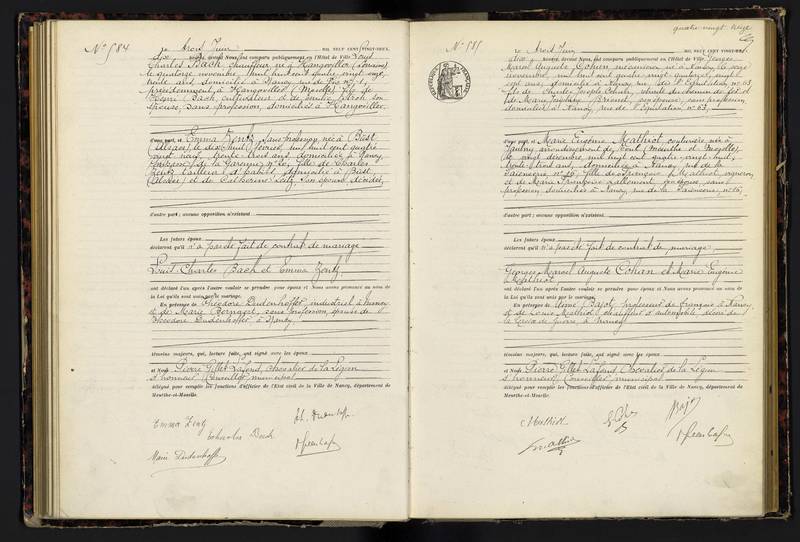 N° 584
Le trois Juin MIL NEUF CENT VINGT-DEUX,
dix heures, devant Nous, ont comparu publiquement en l'Hôtel de Ville Louis
Charles Bach chauffeur, né à Hangoviller (Lorraine)
le quatorze novembre, mil huit cent quatre vingt onze,
trente ans, domicilié à Nancy, rue
précédemment, à Hangoviller (Moselle) fils de
Henri Bach, cultivateur et de
épouse, sans profession, domiciliés à Hangoviller,
d'une part, et Emma Zentz, sans profession, née à Bust
(Alsace), le dix huit février, mil huit cent quatre
vingt neuf, trente trois ans, domiciliée à Nancy,
rue de la Garenne, n° 20, fille de Charles
Zentz, tailleur d'habits, domicilié à Bust
(Alsace) et de Catherine Lutz, son épouse, décédée,
d'autre part; aucune opposition n'existant.
Les futurs époux
déclarent qu'il n'a pas été fait de contrat de mariage
Louis Charles Bach et Emma Zentz,
ont déclaré l'un après l'autre vouloir se prendre pour époux et Nous avons prononcé au nom de
la Loi qu'ils sont unis par le mariage.
En présence de Théodore Dudenhoffer industriel à Nancy
et de Marie Bernagel, sans profession, épouse de
Théodore Dudenhoffer à Nancy,
témoins majeurs, qui, lecture faite, ont signé avec les époux
et Nous Pierre Gillet-Lafond, Chevalier de la Légion
d'honneur, Conseiller municipal
délégué pour remplir les fonctions d'officier de l'Etat civil de la Ville de Nancy, département de
Meurthe-et-Moselle.
Emma Zentz
Charles Bach
Th. Dudenhoffer
Marie Dudenhoffer
quatre vingt treize
N° 585
Le trois Juin MIL NEUF CENT VINGT-DEUX,
dix heures, devant Nous, ont comparu publiquement en l'Hôtel de Ville Georges
Marcel Auguste Cohan, mécanicien, né à Nancy, le seize
novembre, mil huit cent quatre vingt quatorze, vingt
sept ans, domicilié à Nancy, rue de l'Equitation, n° 63,
fils de Charles Joseph Cohan, retraité du chemin de fer et
de Marie Joséphine, son épouse, sans profession,
domiciliés à Nancy, rue de l'Equitation n° 63,
d'une part, et Marie Eugénie Mathiot, couturière, née à
arrondissement de Toul (Meurthe et Moselle),
le vingt décembre, mil huit cent quatre-vingt-huit,
trente-trois ans, domiciliée à Nancy, rue de la
Faïencerie, n° 16, fille de François Mathiot, vigneron,
et de Marie Françoise, son épouse, sans
profession, domiciliés à Nancy, rue de la Faïencerie, n° 16,
d'autre part; aucune opposition n'existant.
Les futurs époux
déclarent qu'il n'a pas été fait de contrat de mariage,
Georges Marcel Auguste Cohan et Marie Eugénie
Mathiot,
ont déclaré l'un après l'autre vouloir se prendre pour époux et Nous avons prononcé au nom de
la Loi qu'ils sont unis par le mariage.
En présence de René Bajol, professeur de français à Nancy
et de Louis Mathiot, chauffeur d'automobile, décoré de
la Croix de Guerre, à Nancy
témoins majeurs, qui, lecture faite, ont signé avec les époux
et Nous Pierre Gillet-Lafond, Chevalier de la Légion
d'honneur, Conseiller municipal
délégué pour remplir les fonctions d'officier de l'Etat civil de la Ville de Nancy, département de
Meurthe-et-Moselle.
Mathiot
Bajol